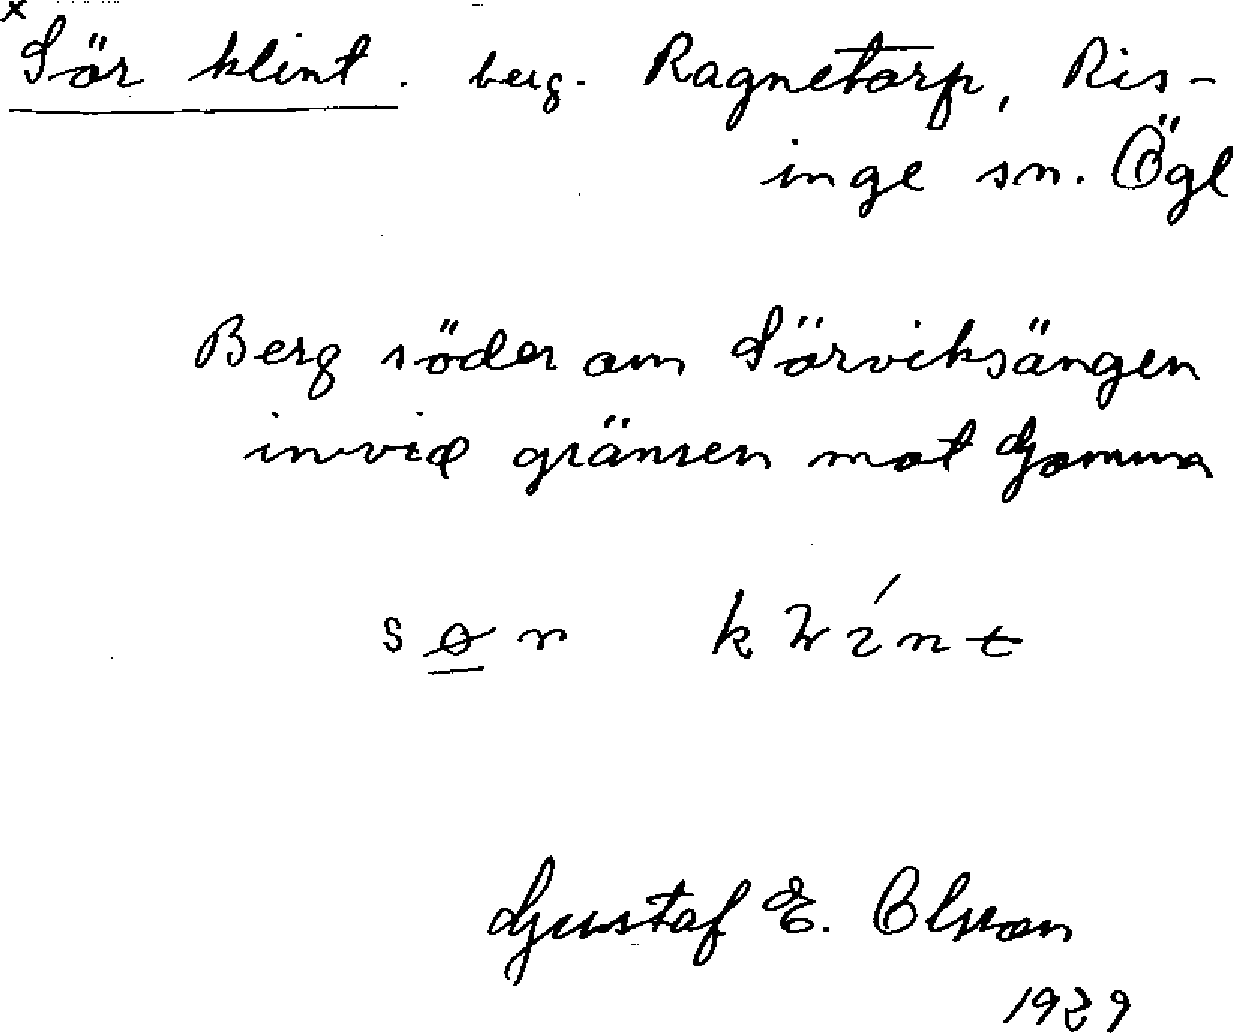 x
Sör klint. berg. Ragnetorp, Ris-
inge sn. Ögl
Berg söder om Sörviksängen
invid gränsen mot
Gustaf E. Olsson
1929